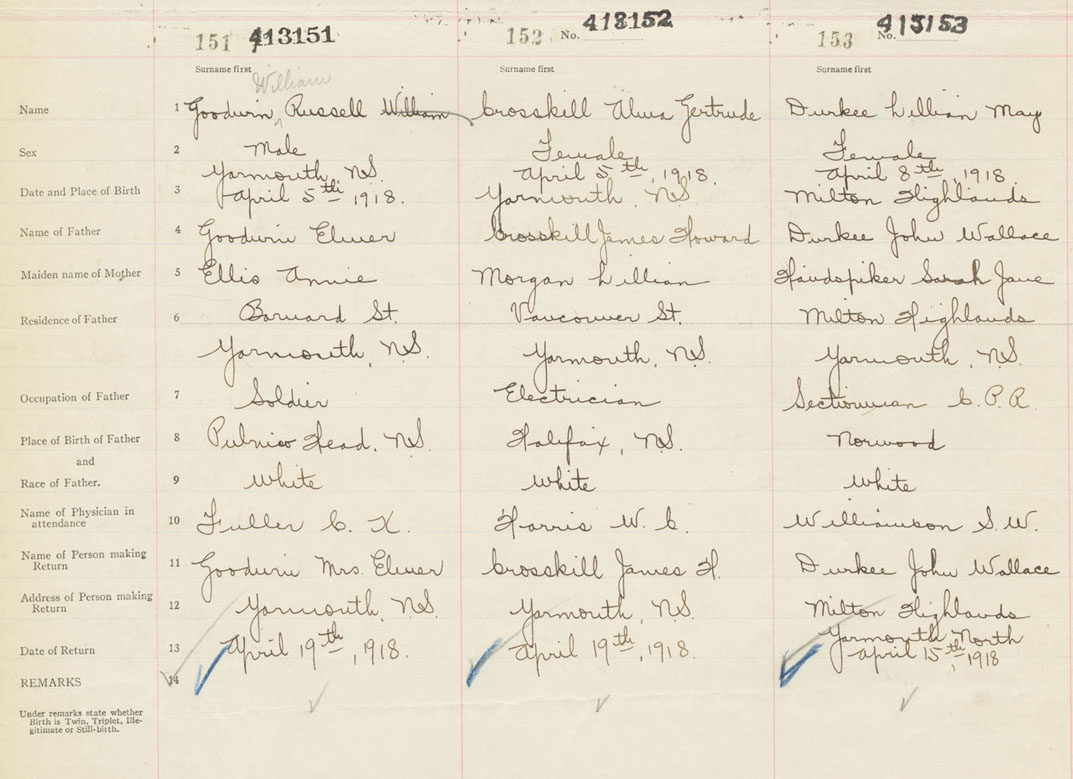 151 413151
152 No. 413152
153 No. 413153
Surname first
Surname first
Surname first
William
Name 1 Goodwin, Russell William Crosskill Alma Gertrude Durkee Lillian May
Sex 2 Male Female Female
Yarmouth, N.S. April 5th, 1918. April 8th, 1918
Date and Place of Birth 3 April 5th 1918. Yarmouth, N.S. Milton Highlands
Name of Father 4 Goodwin Elmer Crosskill James Howard Durkee John Wallace
Maiden name of Mother 5 Ellis Annie Morgan Lillian Handspiker Sarah Jane
Residence of Father 6 Barnard St. Vancouver St. Milton Highlands
Yarmouth, N.S. Yarmouth, N.S. Yarmouth, N.S.
Occupation of Father 7 Soldier Electrician Sectionman C.P.R.
Place of Birth of Father 8 Pubnico Head, N.S. Halifax, N.S. Norwood
and
Race of Father. 9 White White White
Name of Physician in attendance 10 Fuller C. K. Harris W. C. Williamson S.W.
Name of Person making Return 11 Goodwin Mrs. Elmer Crosskill James H. Durkee John Wallace
Address of Person making Return 12 Yarmouth, N.S. Yarmouth, N.S. Milton Highlands
Yarmouth North
Date of Return 13 April 19th, 1918. April 19th, 1918. April 15th, 1918
REMARKS 14
Under remarks state whether
Birth is Twin, Triplet, Ille-
gitimate or Still-birth.